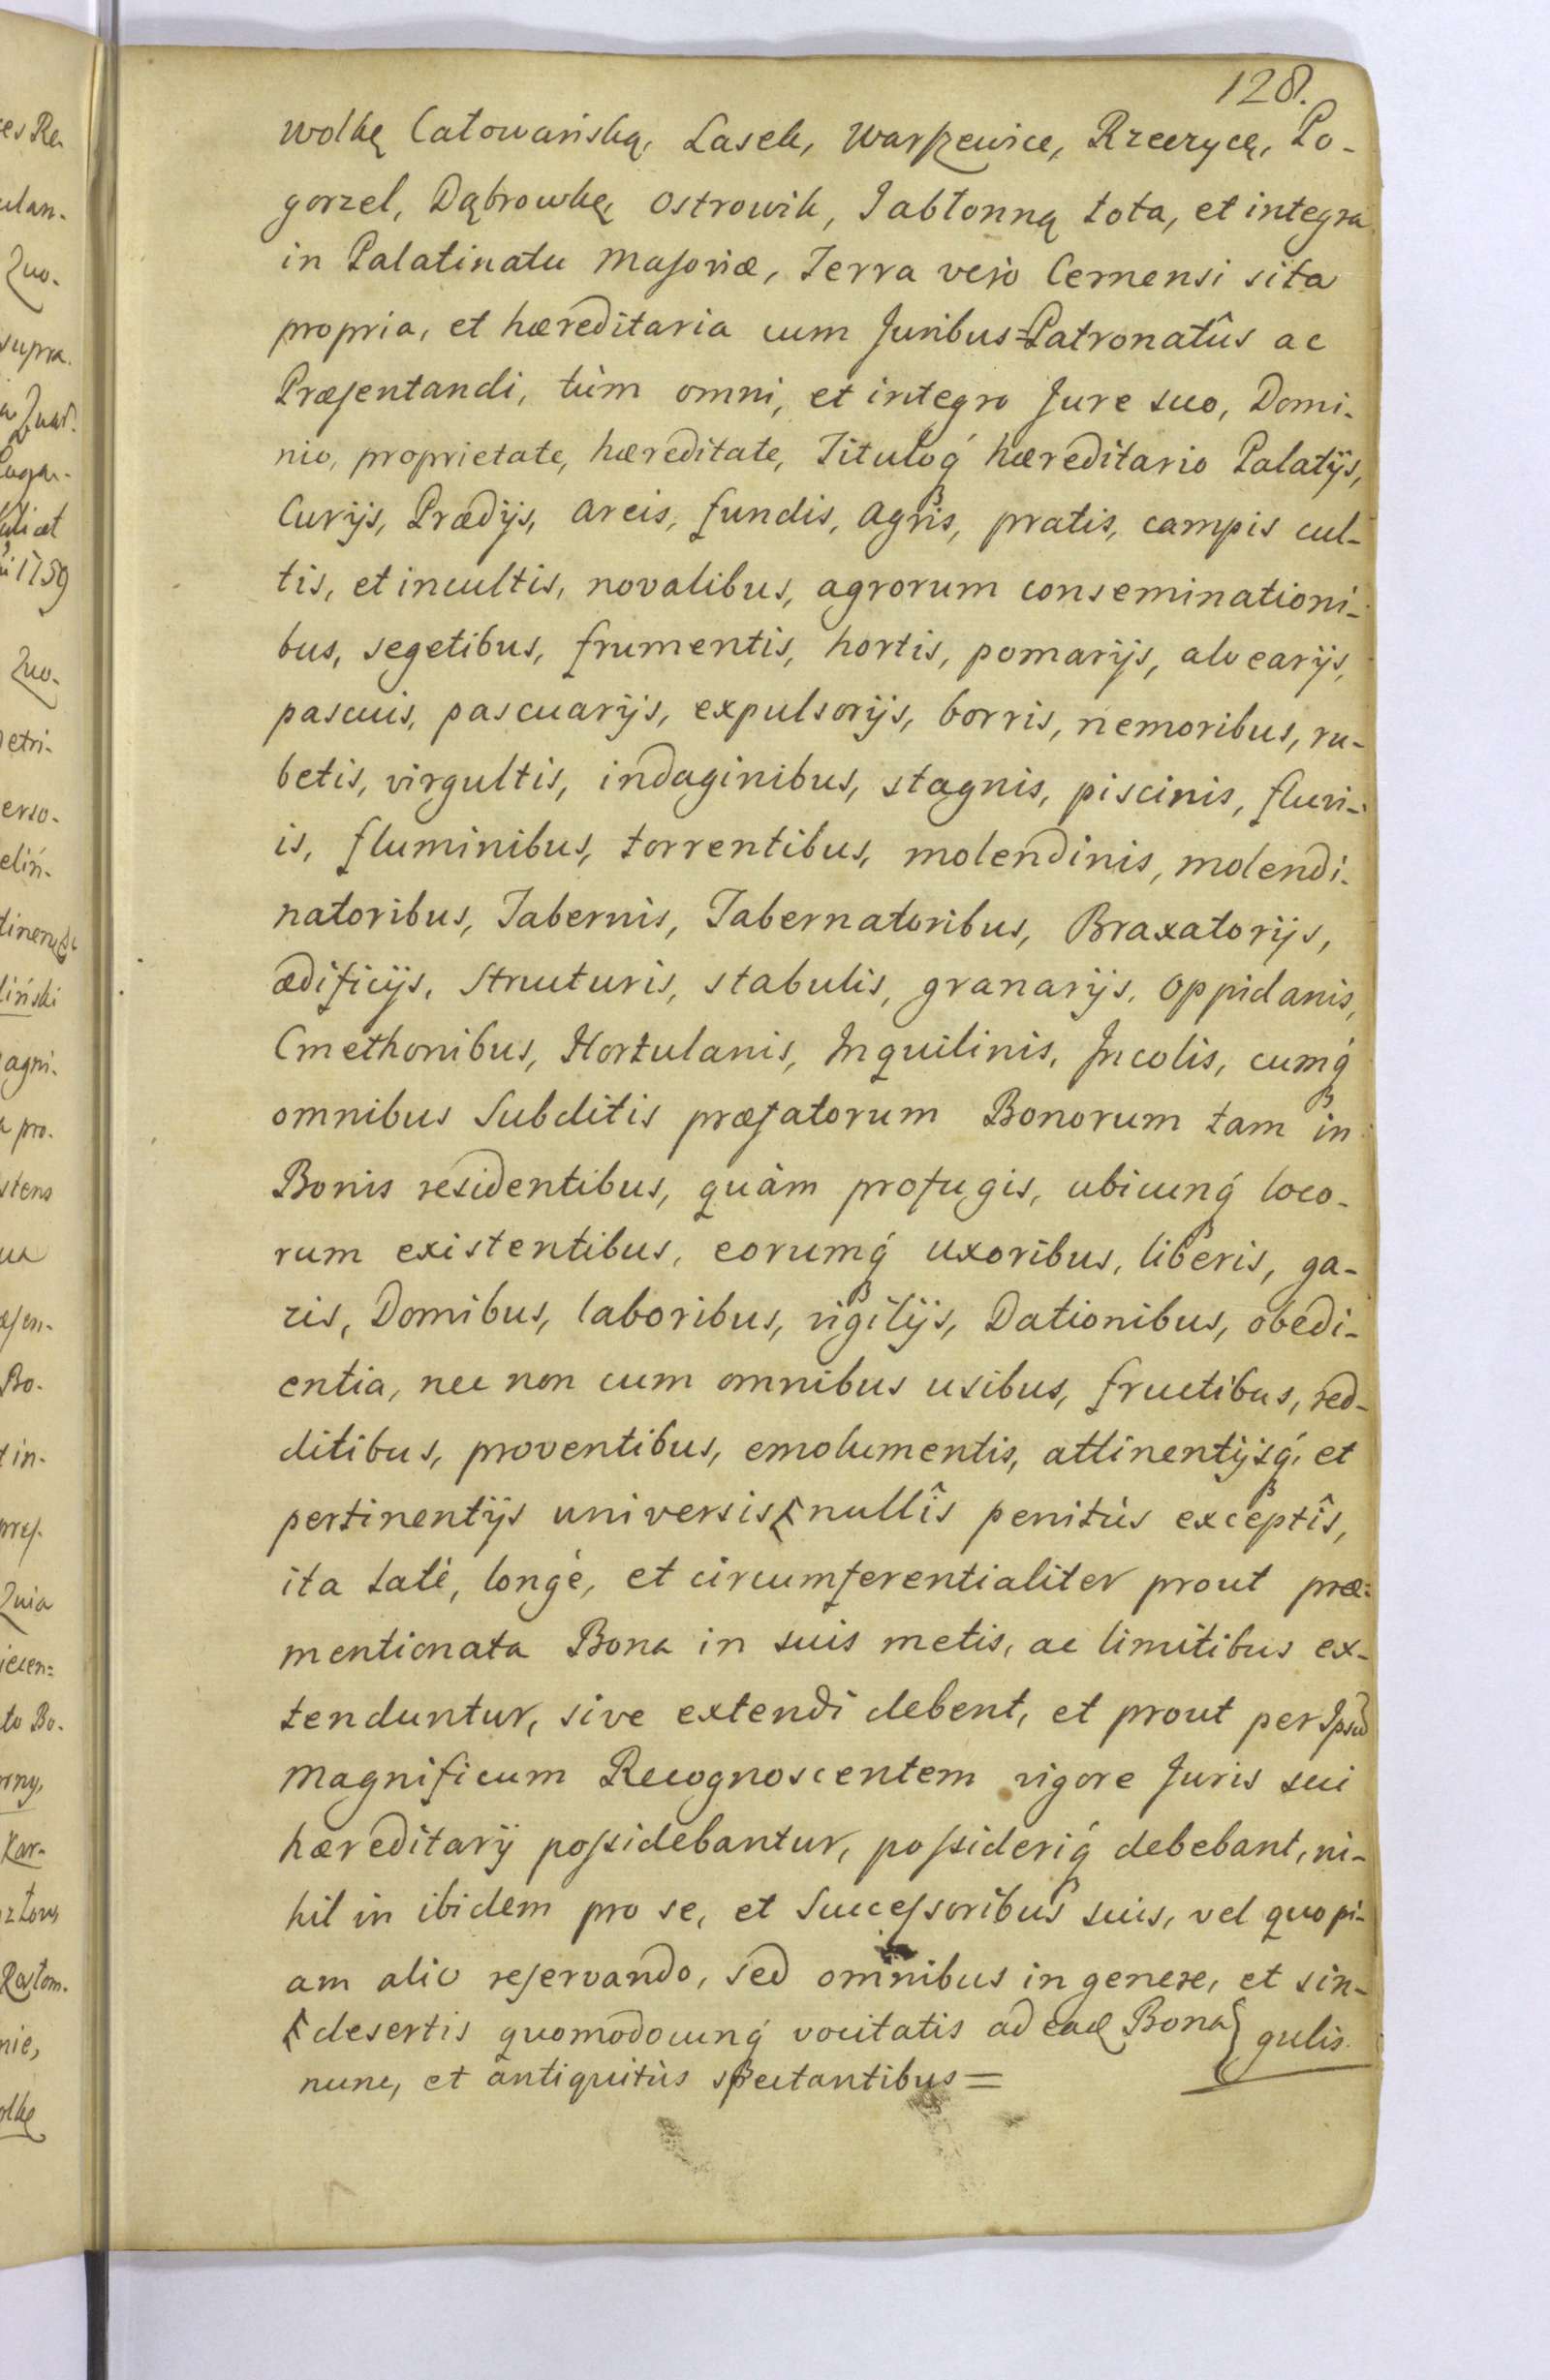 128.
Wolkę Całowańską, Lasek, Warſzewice, Rzeczycę, Po-
gorzel, Dąbrowkę, Ostrowik, Jabłonną tota, et integra
in Palatinatu Masoviæ, Terra verò Cernensi sita
propria, et hæreditaria cum Juribus=Patronatûs ac
Præſentandi, tùm omni, et integro Jure suo, Domi-
nio, proprietate, hæreditate, Tituloq́ hæreditario Palatijs,
Curijs, Prædijs, areis, fundis, agris, pratis, campis cul-
tis, et incultis, novalibus, agrorum conseminationi-
bus, segetibus, frumentis, hortis, pomarijs, alvearijs,
pascuis, pascuarijs, expulsorijs, borris, nemoribus, ru-
betis, virgultis, indaginibus, stagnis, piscinis, fluvi-
is, fluminibus, torrentibus, molendinis, molendi-
natoribus, Tabernis, Tabernatoribus, Braxatorijs,
ædificijs, Structuris, stabulis, granarijs, oppidanis,
Cmethonibus, Hortulanis, Inquilinis, Incolis, cumq́
omnibus Subditis præfatorum Bonorum tam in
Bonis residentibus, quàm profugis, ubicunq́ loco-
rum existentibus, eorumq́ uxoribus, liberis, ga-
zis, Domibus, laboribus, vigilijs, Dationibus, obedi-
entia, nec non cum omnibus usibus, fructibus, red-
ditibus, proventibus, emolumentis, attinentijsq́, et
pertinentijs universis, nullîs penitùs exceptîs,
ita latè, longè, et circumferentialiter prout præ=
mentionata Bona in suis metis, ac limitibus ex-
tenduntur, sive extendi debent, et prout per
Magnificum Recognoscentem vigore Juris sui
hæreditarij poſsidebantur, poſsideriq́ debebant, ni-
hil in ibidem pro se, et Succeſsoribus suis, vel quopi-
am alio reſervando, sed omnibus in genere, et sin-
gulis
desertis quomodocunq́ vocitatis ad Bona
nunc, et antiquitùs spectantibus=